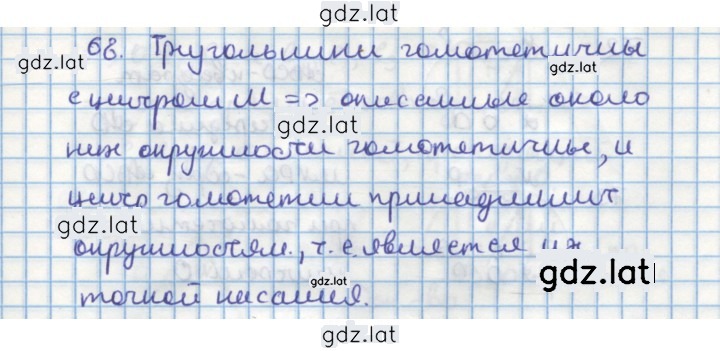 gdz.lat
68. Треугольники гомотетичны
gdz.lat
gdz.lat
с центром M => описанные около
gdz.lat
них окружности гомотетичные, и
центр гомотетии принадлежит
gdz.lat
окружностям, т. е. является их
gdz.lat
точкой касания.
gdz.lat
gdz.lat